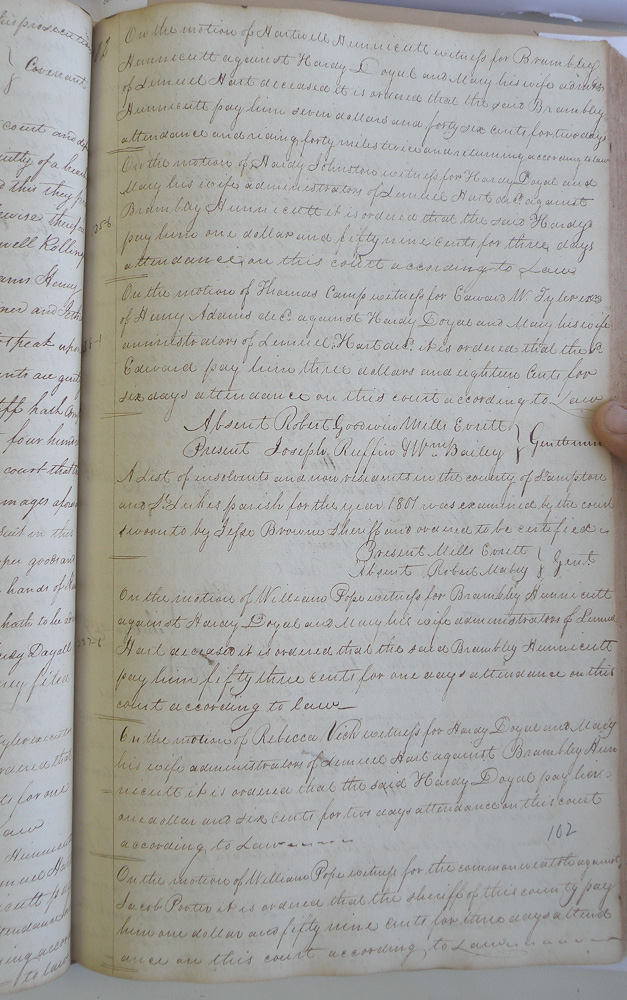 his prosecution
Covenant
court and
guilty of a
this they
likewise
well Rolling
Henry
and
speak upon
are
hath
four hundred
court that
damages
suit in this
goods and
hands of
hath to be
Hardy Doyall
filed
Tyler executor
ordered that
for one
Law
Hunnicutt
Lemuel Hart
Hunnicutt pay
attendance
to law
On the motion of Hartwell Hunnicutt witness for Brambley
Hunnicutt against Hardy Doyal and Mary his wife admrs
of Lemuel Hart deceased it is ordered that the said Brambley
Hunnicutt pay him seven dollars and forty six cents for two days
attendance and riding forty miles twice and returning according to law
On the motion of Hardy Johnston witness for Hardy Doyal and
Mary his wife administrators of Lemuel Hart decd. against
Brambley Hunnicutt it is ordered that the said Hardy
pay him one dollar and fifty nine cents for three days
attendance on this court according to Law
On the motion of Thomas Camp witness for Edward W. Tyler exor
of Henry Adams decd. against Hardy Doyal and Mary his wife
administrators of Lemuel Hart decd. it is ordered that the sd.
Edward pay him three dollars and eighteen Cents for
six days attendance on this court according to Law
Absent Robert Goodwin Mills Everitt
Present Joseph Ruffin & Wm. Bailey } Gentlemen
A List of insolvents and non residents in the county of
and St Lukes parish for the year 1801 was examined by the court
sworn to by Jesse Browne Sheriff and ordered to be certified
Present Mills Everitt
Absent Robert Mabry } Gent
On the motion of William Pope witness for Brambley Hunnicutt
against Hardy Doyal and Mary his wife administrators of Lemuel
Hart deceased it is ordered that the said Brambley Hunnicutt
pay him fifty three cents for one days attendance on this
court according to law
On the motion of Rebecca Vick witness for Hardy Doyal and Mary
his wife administrators of Lemuel Hart against Brambley Hun
nicutt it is ordered that the said Hardy Doyal pay him
one dollar and six cents for two days attendance on this court
according to Law
102
On the motion of William Pope witness for the commonwealth against
Jacob Porter it is ordered that the sheriff of this county pay
him one dollar and fifty nine cents for three days attend
ance on this court according to Law